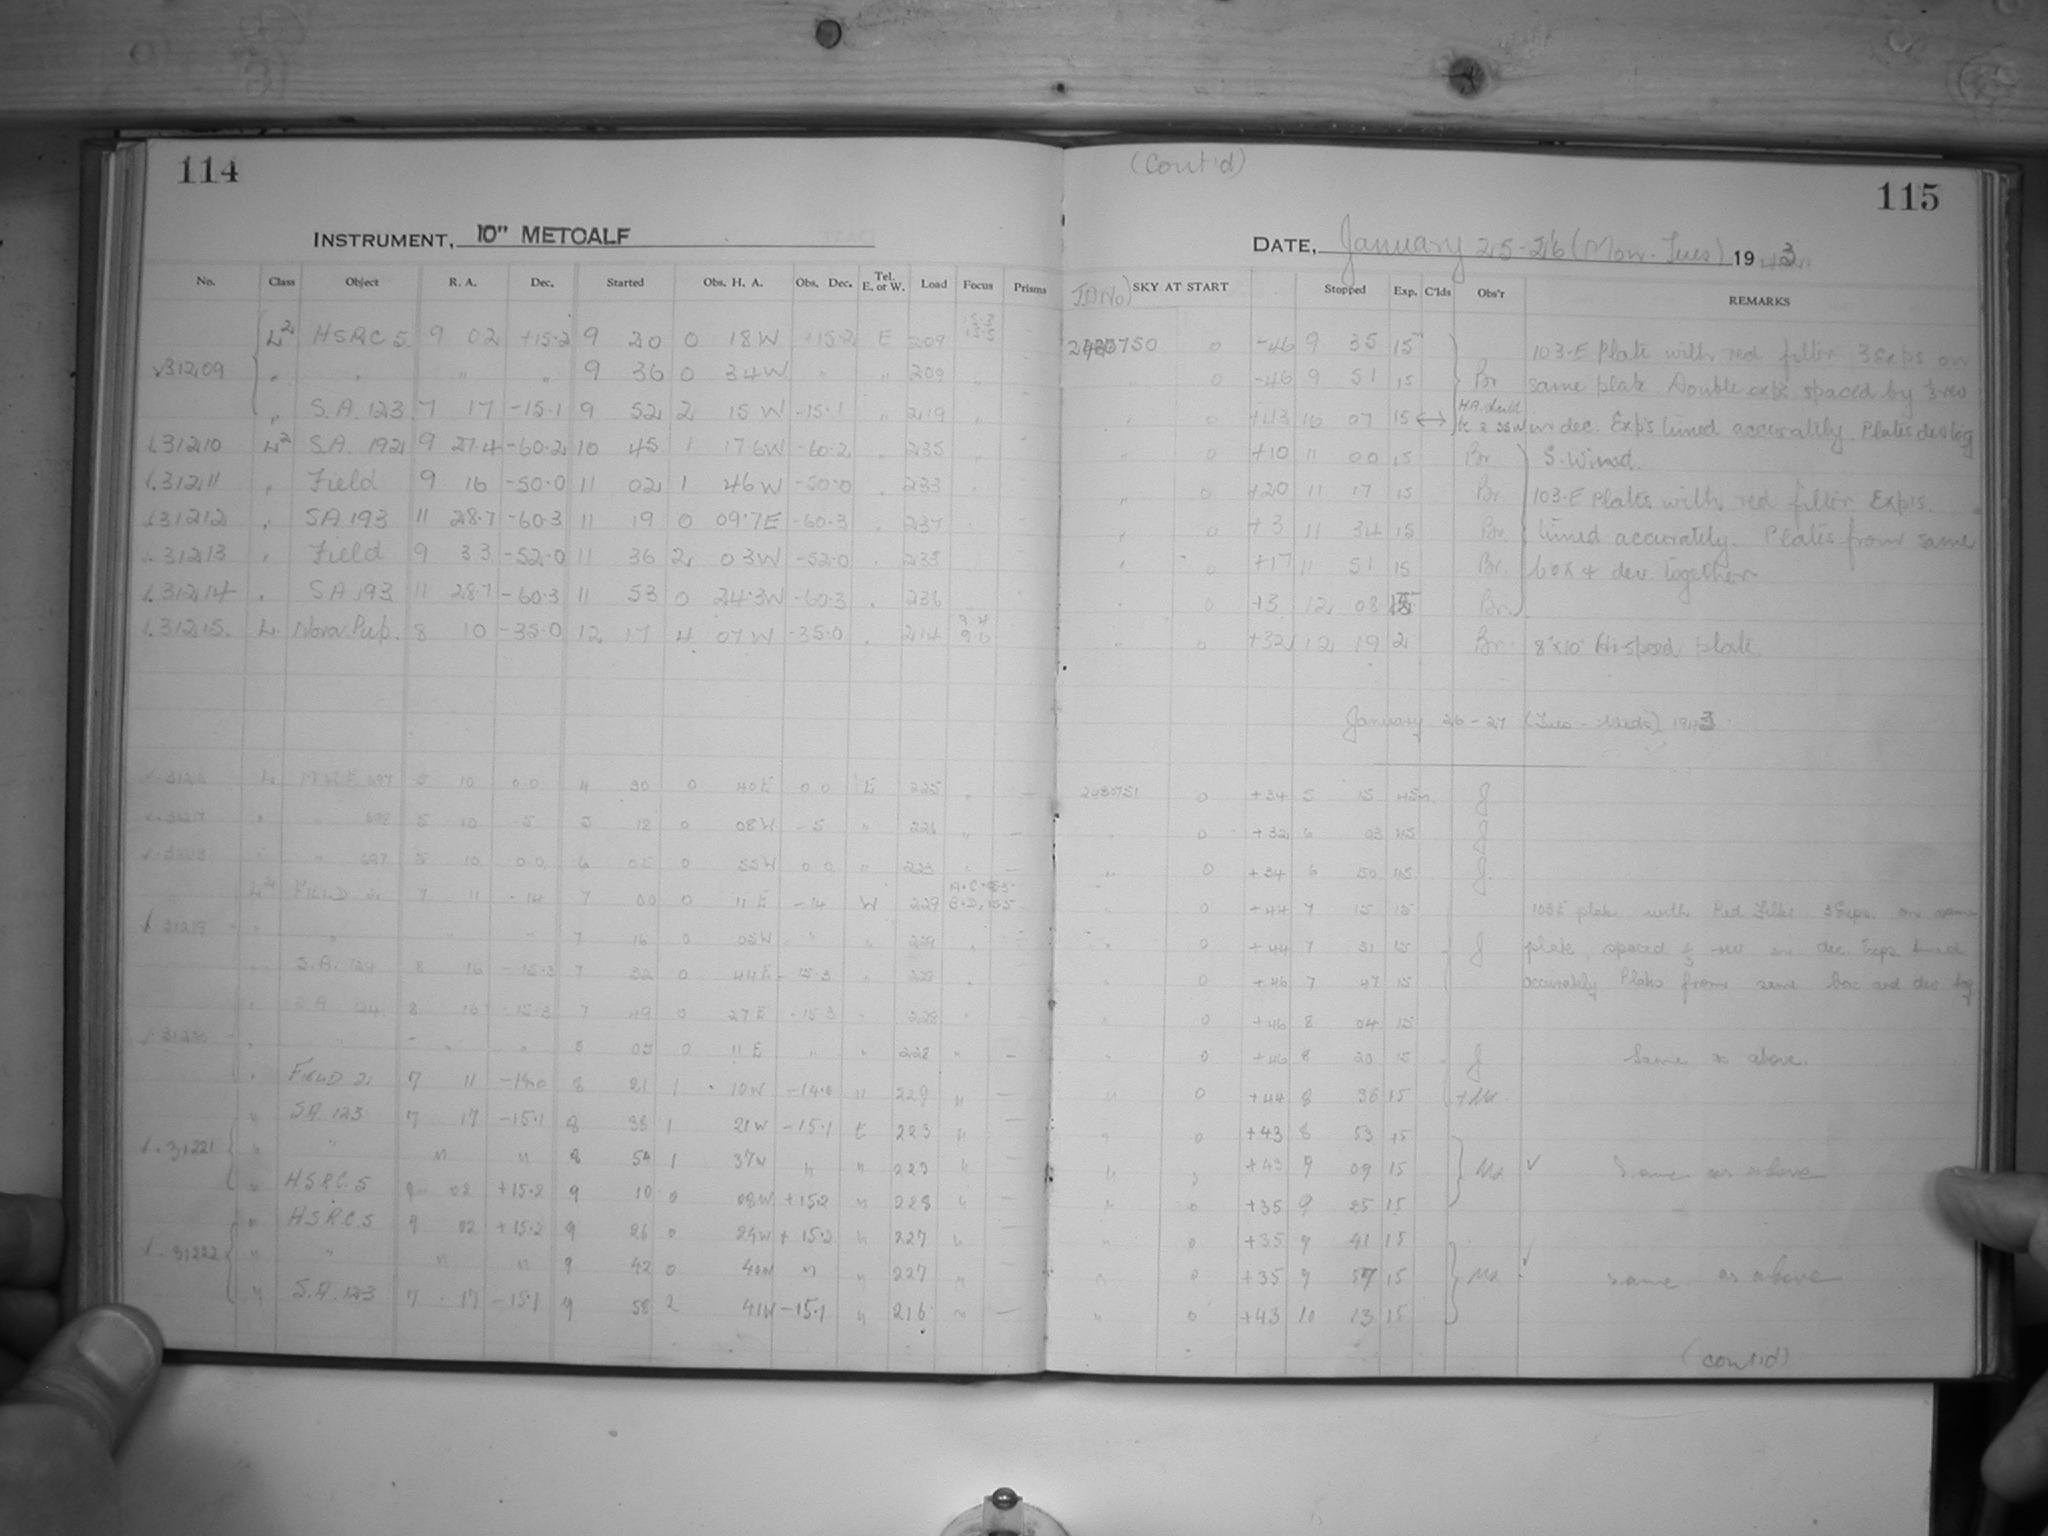 (Cont'd)
114
115
INSTRUMENT, 10" METCALF
DATE, January 25-26 (Mon-Tues) 1943
No. Class Object R. A. Dec. Started Obs. H. A. Obs. Dec. Tel. E. or W. Load Focus Prisms JD No) SKY AT START Stopped Exp. C'lds Obs'r REMARKS
L2 HSRC 5 9 02 +15.2 9 20 0 18W +15.2 E 209 0 -46 9 35 15 103-E Plate with red filter 3 Exps on
31209 " " " " 9 36 0 34W " " 209 " " 0 -46 9 51 15 Br same plate Double exps spaced by
" S.A. 123 7 17 -15.1 9 52 2 15W -15.1 " 219 " " 0 +43 10 07 15 in dec. Exp's timed accurately. Plates dev tog
31210 L2 S.A. 192 9 27.4 -60.2 10 45 1 17.6W -60.2 235 " 0 +10 11 00 15 Br S. Wind.
31211 " Field 9 16 -50.0 11 02 1 46W -50.0 233 " 0 +20 11 17 15 Br. 103-E Plates with red filter Exp's.
31212 " SA 193 11 28.7 -60.3 11 19 0 09.7E -60.3 237 " 0 +3 11 34 15 Br timed accurately. Plates from same
31213 " Field 9 33 -52.0 11 36 2 03W -52.0 235 " 0 +17 11 51 15 Br. box & dev. together
31214 " SA 193 11 28.7 -60.3 11 53 0 24.3W -60.3 236 " 0 +3 12 08 15 Br.
31215 L Nova Pup. 8 10 -35.0 12 17 4 07W -35.0 214 " 0 +32 12 19 2 Br. 8"x10" Hi-speed plate.
January 26-27 (Tues - Weds) 1943
L 697 5 10 0.0 4 30 0 40E 0.0 E 225 " — 2430751 0 +34 5 15 45m J
" " 698 5 10 -5 5 18 0 08W -5 " 226 " — " 0 +32 6 03 45 J
" " 697 5 10 0.0 6 05 0 55W 0.0 " 223 " — " 0 +34 6 50 45 J
FIELD 21 7 11 -14 7 00 0 11E -14 W 229 " 0 +44 7 15 15 103E plate with Red Filter 3 Exps. on same
31219 " " " " 7 16 0 05W " " 229 " " 0 +44 7 31 15 J plate, spaced in dec Exps timed
" S.A. 124 8 16 -15.3 7 32 0 44E -15.3 " 228 " " 0 +46 7 47 15 accurately Plates from same box and dev tog
" S.A. 124 8 16 -15.3 7 49 0 27E -15.3 " 228 " " 0 +46 8 04 15
31220 " " " " 8 05 0 11E " " 228 " — " 0 +46 8 20 15 J Same as above.
" FIELD 21 7 11 -14.0 8 21 1 10W -14.0 " 229 " — " 0 +44 8 36 15
" S.A. 123 7 17 -15.1 8 38 1 21W -15.1 E 223 " — " 0 +43 8 53 15
31221 " " " " 8 54 1 37W " " 223 " " +43 9 09 15 Same as above
" H.S.R.C. 5 9 02 +15.2 9 10 0 08W +15.2 " 228 " — " 0 +35 9 25 15
" H.S.R.C. 5 9 02 +15.2 9 26 0 24W +15.2 " 227 " " 0 +35 9 41 15
31222 " " " " 9 42 0 40W " " 227 " " 0 +35 9 57 15 same as above
" S.A. 123 7 17 -15.1 9 58 2 41W -15.1 " 216 " — " 0 +43 10 13 15
(cont'd)